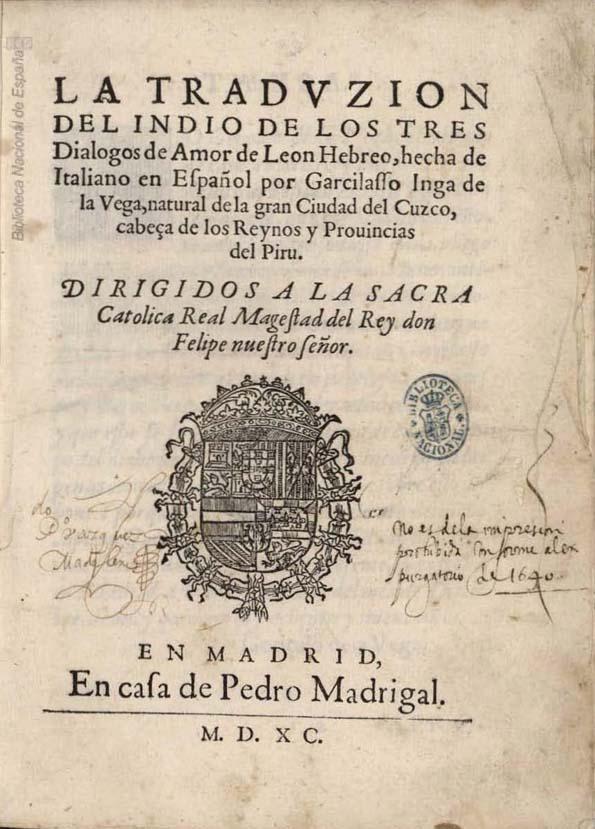 LA TRADVZION
DEL INDIO DE LOS TRES
Dialogos de Amor de Leon Hebreo, hecha de
Italiano en Eſpañol por Garcilaſſo Inga de
la Vega, natural de la gran Ciudad del Cuzco,
cabeça de los Reynos y Prouincias
del Piru.
DIRIGIDOS A LA SACRA
Catolica Real Mageſtad del Rey don
Felipe nueſtro ſeñor.
BIBLIOTECA
NACIONAL
No es dela impresion
prohibida conforme al ex
purgatorio de 1640
EN MADRID,
En caſa de Pedro Madrigal.
M. D. XC.
Biblioteca Nacional de España